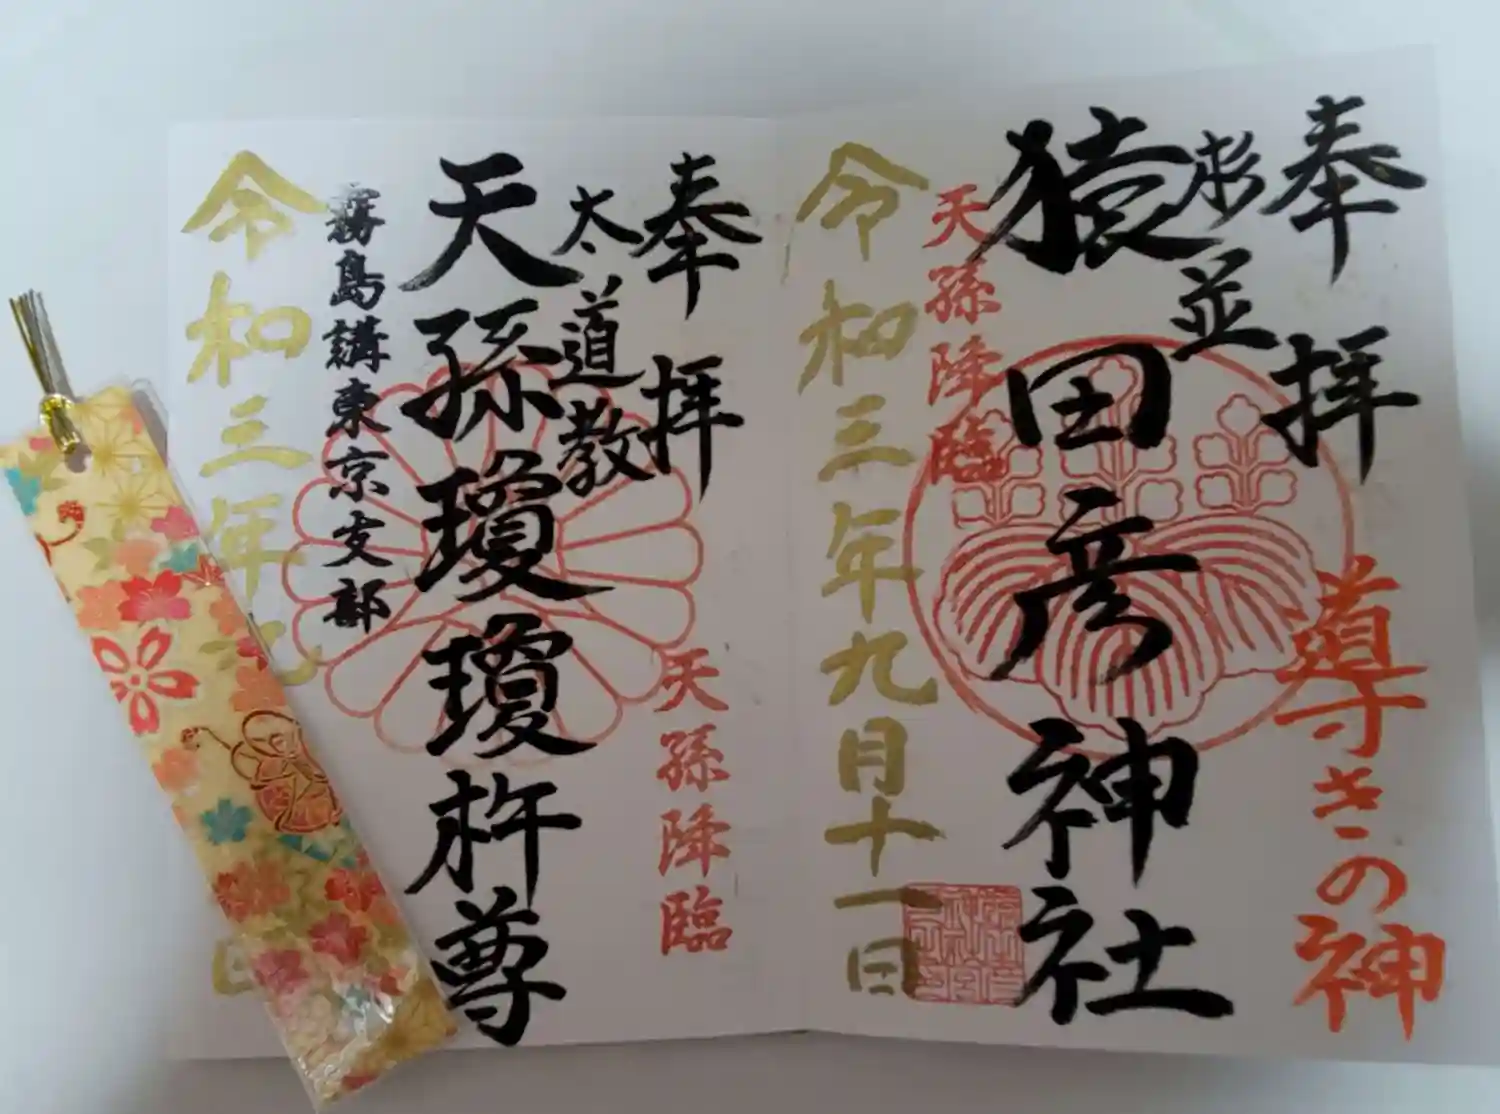 奉拝
杉並
猿田彦神社
導きの神
天孫降臨
令和三年九月十一日
奉拝
太道教
天孫瓊瓊杵尊
天孫降臨
霧島講東京支部
令和三年